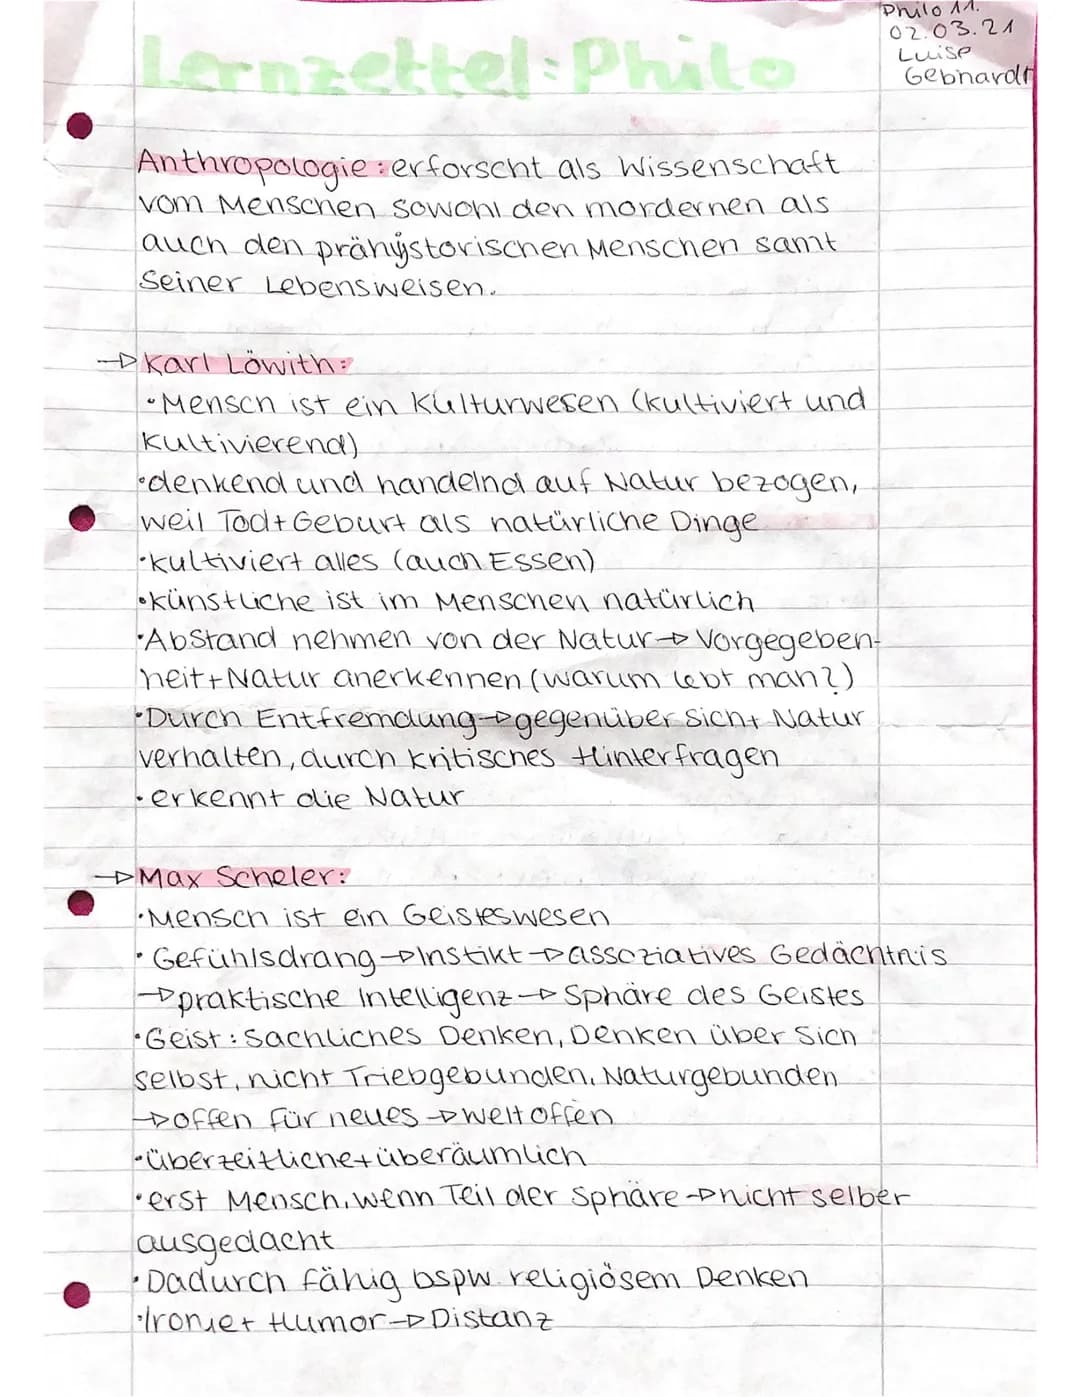 Philo 11.
02.03.21
Luise
Gebhardt
Lernzettel: Philo
Anthropologie: erforscht als Wissenschaft
vom Menschen sowohl den mordernen als
auch den prähystorischen Menschen samt
seiner Lebensweisen.
→ Karl Löwith:
• Mensch ist ein Kulturwesen (kultiviert und
kultivierend)
• denkend und handelnd auf Natur bezogen,
weil Tod + Geburt als natürliche Dinge
• kultiviert alles (auch Essen)
• künstliche ist im Menschen natürlich
• Abstand nehmen von der Natur → Vorgegeben-
heit + Natur anerkennen (warum lebt man?)
• Durch Entfremdung → gegenüber sich + Natur
verhalten, durch kritisches Hinterfragen
• erkennt die Natur
→ Max Scheler:
• Mensch ist ein Geisteswesen
• Gefühlsdrang → Instikt → assoziatives Gedächtnis
→ praktische Intelligenz → Sphäre des Geistes
• Geist: sachliches Denken, Denken über sich
selbst, nicht Triebgebunden, Naturgebunden
→ offen für neues → weltoffen
• überzeitliche + überäumlich
• erst Mensch, wenn Teil der Sphäre → nicht selber
ausgedacht
• Dadurch fähig bspw. religiösem Denken
• Ironie + Humor → Distanz